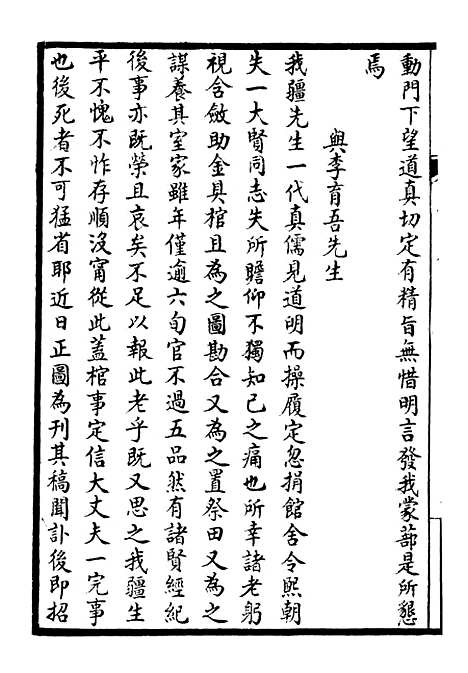 動門下望道真切定有精旨無惜明言發我蒙蔀是所懇
焉
與李育吾先生
我疆先生一代真儒見道明而操履定忽捐館舍令熙朝
失一大賢同志失所瞻仰不獨知己之痛也所幸諸老躬
視含斂助金具棺且為之圖勘合又為之置祭田又為之
謀養其室家雖年僅逾六旬官不過五品然有諸賢經紀
後事亦既榮且哀矣不足以報此老乎既又思之我疆生
平不愧不怍存順沒甯從此蓋棺事定信大丈夫一完事
也後死者不可猛省耶近日正圖為刊其稿聞訃後即招